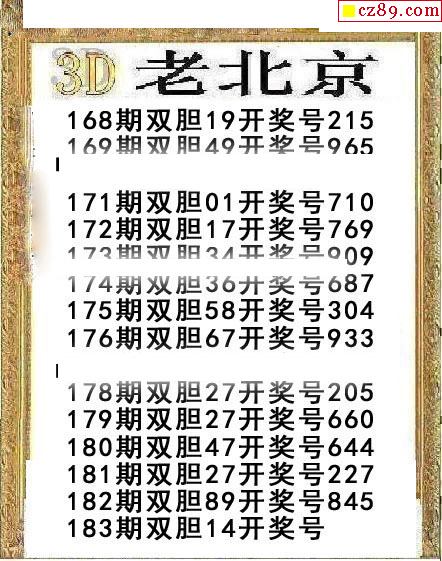 cz89.com
3D 老北京
168期双胆19开奖号215
169期双胆49开奖号965
171期双胆01开奖号710
172期双胆17开奖号769
173期双胆34开奖号909
174期双胆36开奖号687
175期双胆58开奖号304
176期双胆67开奖号933
178期双胆27开奖号205
179期双胆27开奖号660
180期双胆47开奖号644
181期双胆27开奖号227
182期双胆89开奖号845
183期双胆14开奖号